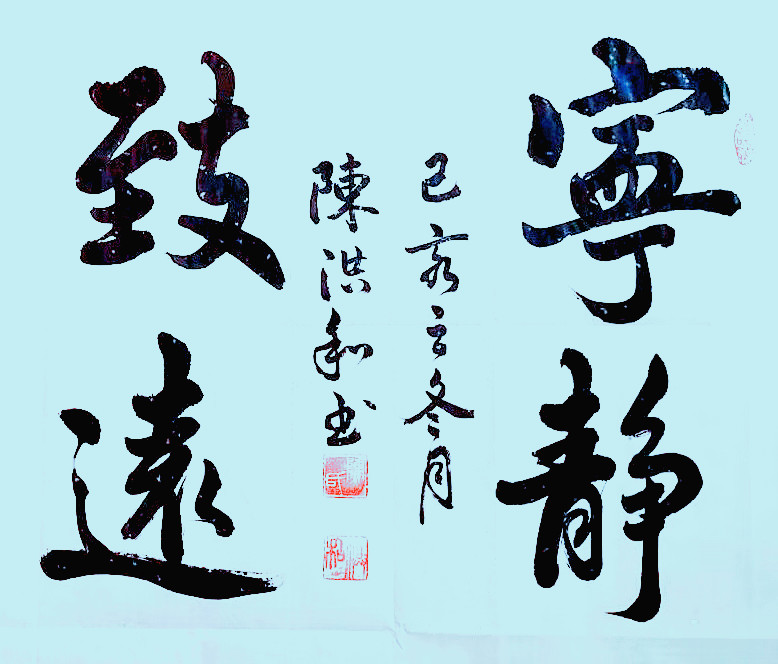 寧靜
致遠
己亥之冬月
陳洪和书